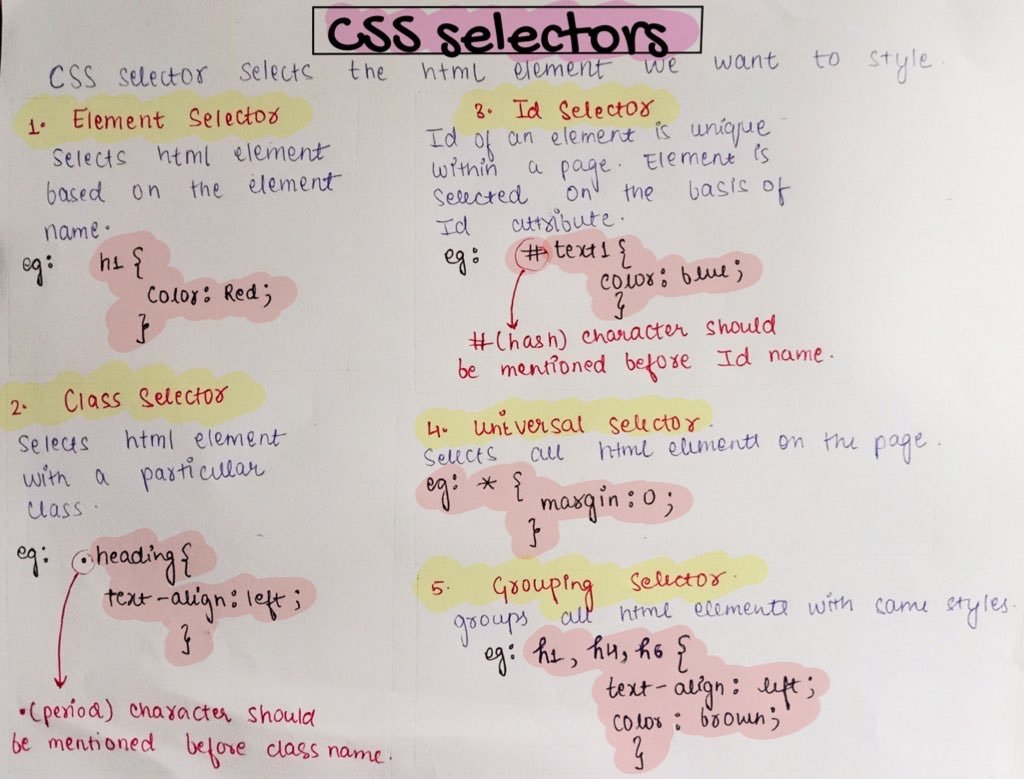 CSS selectors
CSS selector selects the html element we want to style.
1. Element Selector
Selects html element
based on the element
name.
eg: h1 {
color: Red;
}
2. Class Selector
Selects html element
with a particular
class.
eg: .heading{
text-align: left;
}
.(period) character should
be mentioned before class name.
3. Id Selector
Id of an element is unique
within a page. Element is
selected on the basis of
Id attribute.
eg: #text1{
color: blue;
}
#(hash) character should
be mentioned before Id name.
4. Universal selector.
Selects all html elements on the page.
eg: * {
margin: 0;
}
5. Grouping Selector.
groups all html elements with same styles.
eg: h1, h4, h6 {
text-align: left;
color: brown;
}